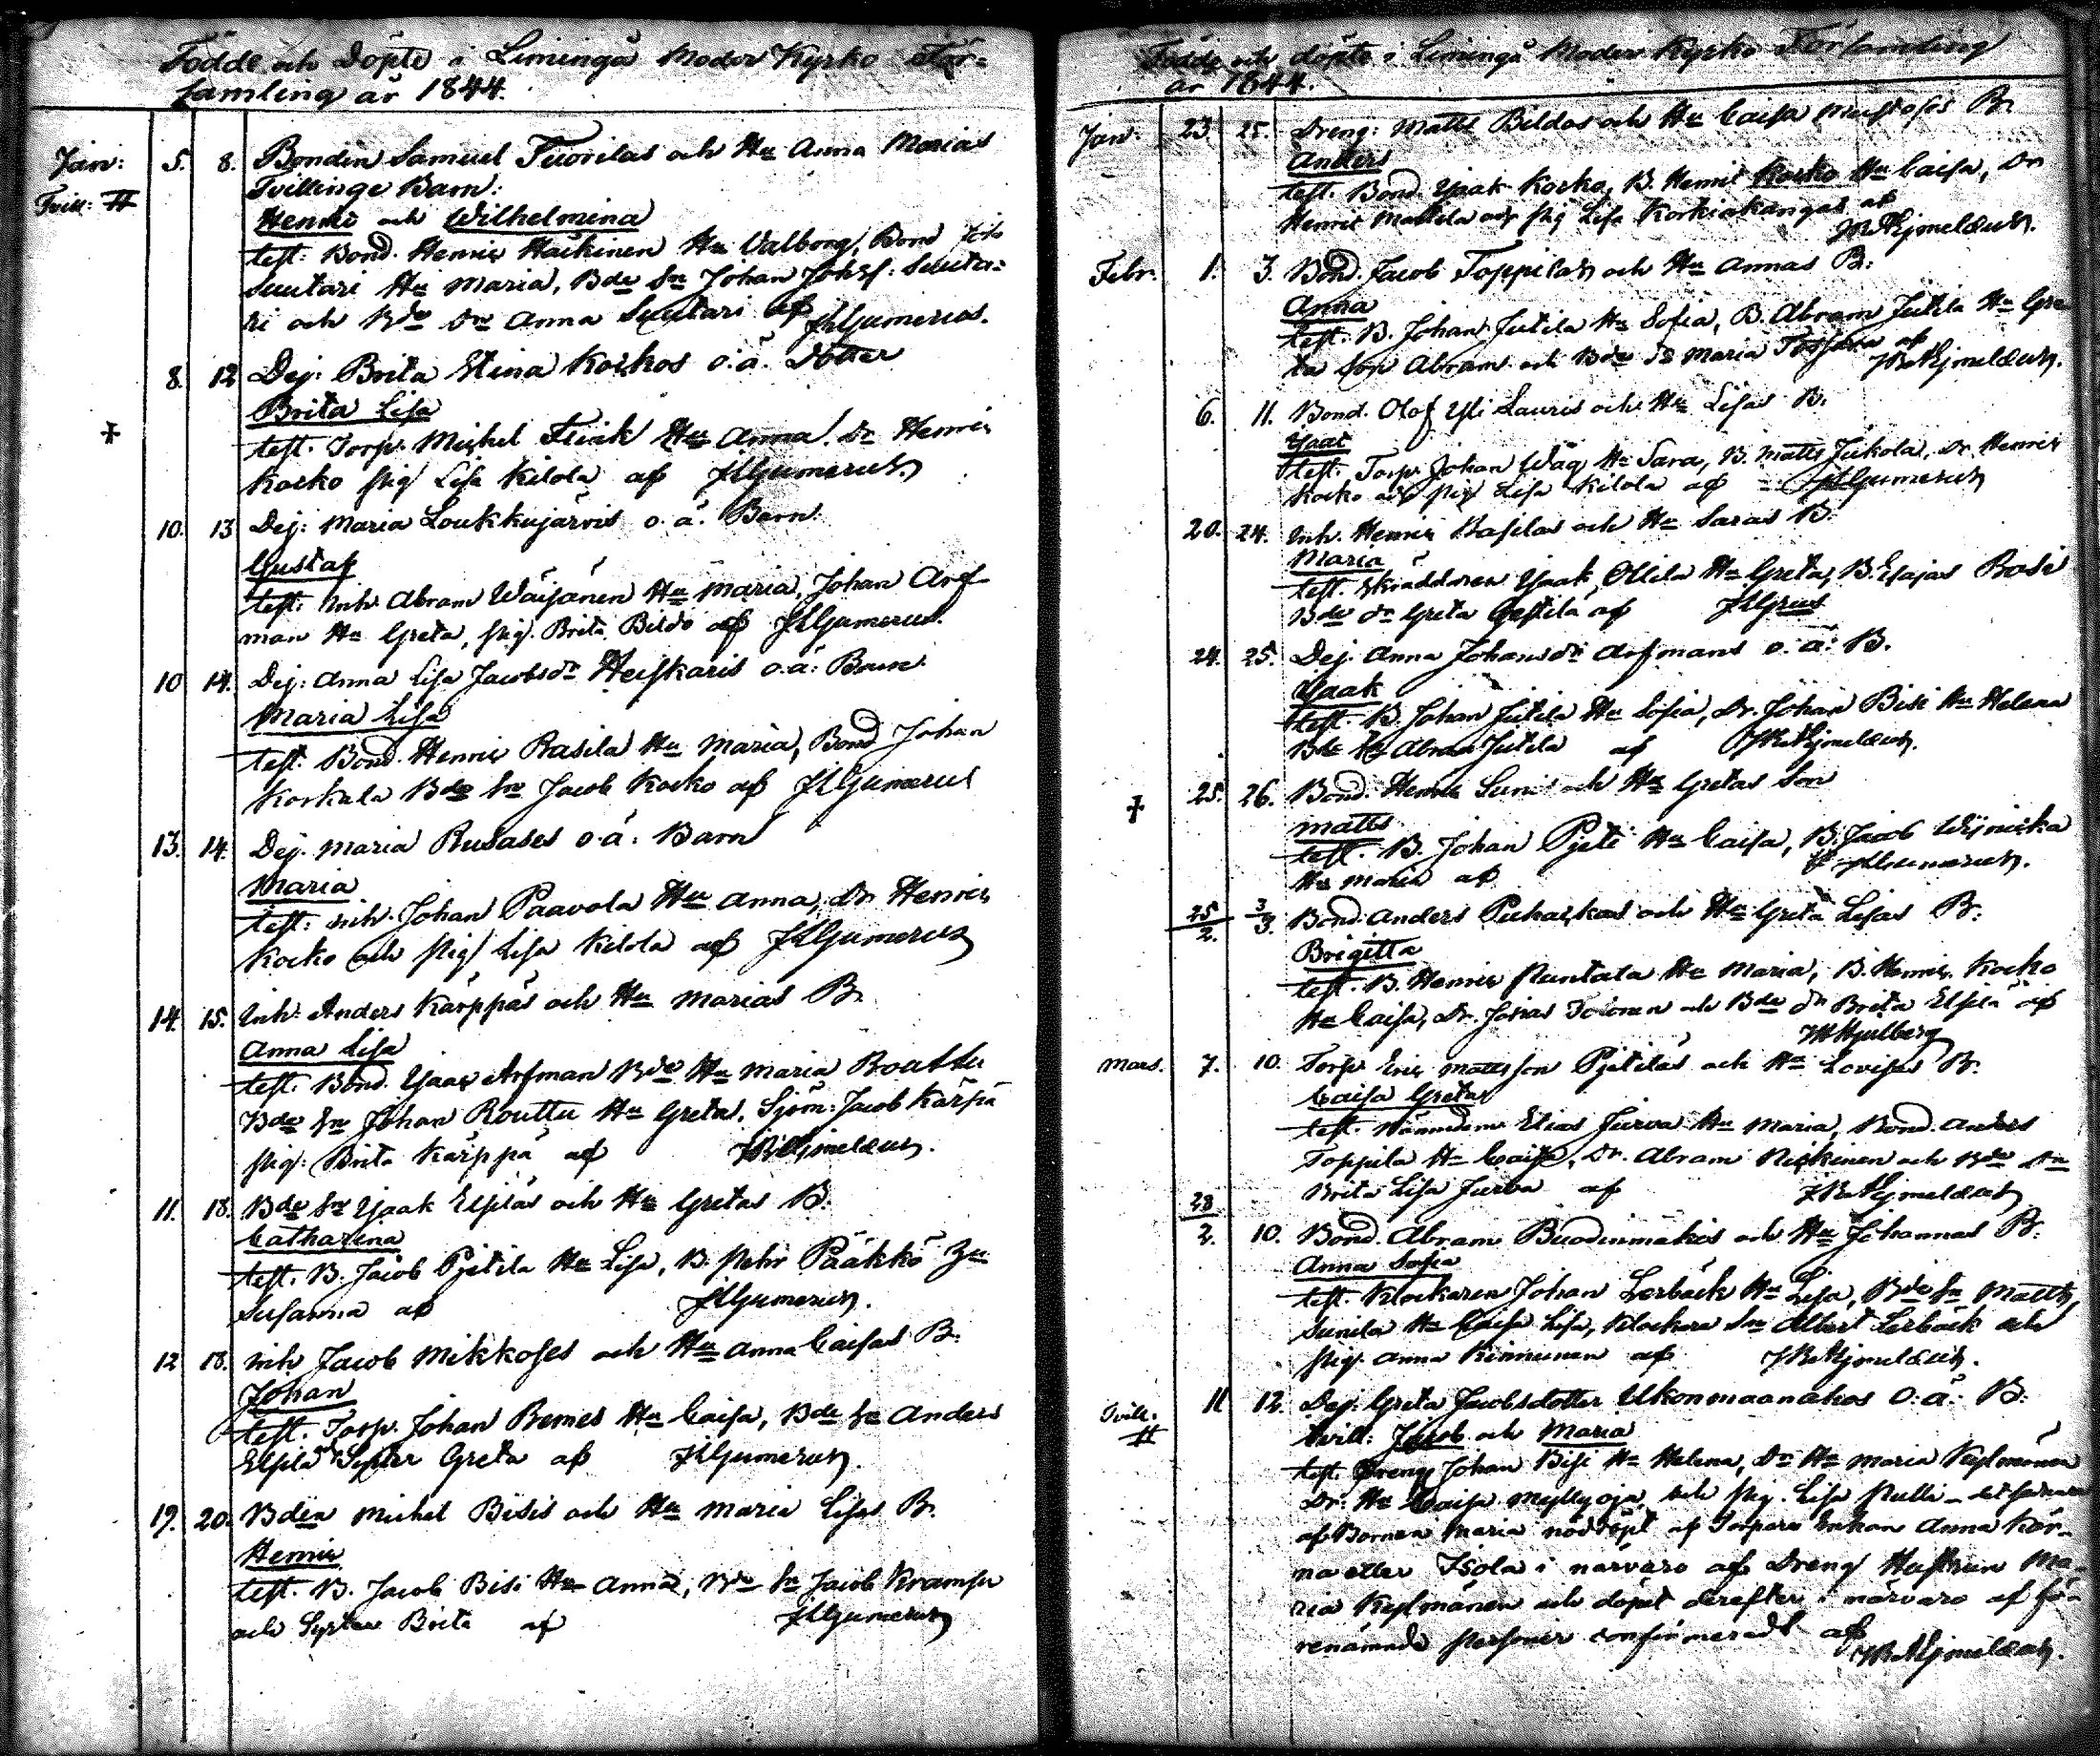 Födde och Döpte i Limingå Moder Kyrko För=
samling år 1844.
Jan: 5. 8. Bonden Samuel Tuorilas och Hu Anna Marias
Tvill: Tvillinge Barn:
Henric och Wilhelmina
test: Bond. Henric Haikinen Hu Valborg, Bond
Suutari Hu Maria, Bde Sn Johan Johsf: Suuta=
ri och Bde Dr Anna Suutari af JHGumerus.
8. 12 Dej: Brita Stina Koskos o.ä. Dotter
Brita Lisa
test. Torp. Michel Hu Anna, Dr Henric
Kocko pig Lisa Kilola af JHGumerus
10. 13 Dej: Maria Loukkujärvis o.ä. Barn.
Gustaf
test: Inh Abram Wäisänen Hu Maria, Johan Arf
man Hu Greta, pig. Brita Bildo af JHGumerus.
10 14. Dej: Anna Lisa Jacobsdr Heiskaris o.ä: Barn.
Maria Lisa
test. Bond. Henric Rasila Hu Maria, Bond Johan
Korkala Bde Sn Jacob Kocko af JHGumerus
13. 14. Dej. Maria Rusases o.ä. Barn
Maria
test: inh. Johan Paavola Hu Anna, Dr Henric
Kocko och pig Lisa Kilola af JHGumerus
14. 15. Inh. Anders Kärppäs och Hu Marias B.
Anna Lisa
test. Bond. Isaac Arfman Bde Hu Maria Routtu
Bde Sn Johan Routtu Hu Greta, Sjöm: Jacob Kärpä
pig: Brita Kärppä af
11. 18. Bde Sn Isaak Elpiläs och Hu Gretas B.
Catharina
test. B. Jacob Pjetilä Hu Lisa, B. Pehr Pääkkö Hu
Susanna af JHGumerus.
12 18. inh. Jacob Mikkoses och Hu Anna Caisas B.
Johan
test. Torp. Johan Remes Hu Caisa, Bde Sn Anders
Elpilä Syster Greta af JHGumerus.
19. 20. Bden Michel Bisis och Hu Maria Lisas B.
Henric
test. B. Jacob Bisi Hu Anna, Bde Sn Jacob Krampu
och Syster Brita af JHGumerus
Födde och döpte i Limingå Moder Kyrko Församling
år 1844.
Jan. 23 25. Dreng: Matts Bildos och Hu Caisa B.
Anders
test. Bond. Isaak Kocko, B. Henric Kocko Hu Caisa, Dr
Henric Mattila och pig Lisa Korkiakangas af
Febr. 1. 3. Bond. Jacob Toppilas och Hu Annas B:
Anna
test. B. Johan Jutila Hu Sofia, B. Abram Jutila Hu Gre
ta Son Abram och Bde Dr Maria af
6. 11. Bond. Olof Yli Lauris och Hu Lisas B.
Isaac
test. Torp. Johan Wäg Hu Sara, B. Matts Jukola, Dr. Henric
Kocko och pig Lisa Kilola af JHGumerus
20. 24. Inh. Henric Rasilas och Hu Saras B.
Maria
test. Skräddaren Isaak Ollila Hu Greta, B. Esajas Rasi
Bde Dr Greta af
24. 25. Dej. Anna Johansdr Arfmans o. ä: B.
Isaak
test. B. Johan Jutila Hu Sofia, Dr. Johan Bisi Hu Helena
Bde Sn Abram Jutila af
25. 26. Bond. Henric Sunis och Hu Gretas Son
Matts
test. B. Johan Pjeti Hu Caisa, B. Jacob
Hu Maria af JHGumerus.
25/2. 3/3. Bond. Anders Puhackas och Hu Greta Lisas B.
Brigitta
test. B. Henric Runtala Hu Maria, B. Henric Kocko
Hu Caisa, Dr. Josias Toivonen och Bde Dr Brita Elpilä af
Mars. 7. 10. Torp. Eric Mattsson Pjetiläs och Hu Lovisas B.
Caisa Greta
test. Nämndem. Elias Jurva Hu Maria, Bond. Anders
Toppila Hu Caisa, Dr. Abram Niskinen och Bde Dr
Brita Lisa Jurva af
28/2. 10. Bond. Abram Buodinmäkis och Hu Johannas B.
Anna Sofia
test. Klockaren Johan Lerbäck Hu Lisa, Bde Sn Matts
Sunila Hu Caisa Lisa, Klockare Sn Albert Lerbäck och
pig. Anna Kinnunen af
Tvill. 11 12. Dej: Greta Jacobsdotter Ukonmaanahos O. ä: B:
tvill: Jacob och Maria
test. Dreng Johan Bisi Hu Helena, Dr Hu Maria Kylmänen
Dr: Hu Caisa Myllyoja, och pig. Lisa Pulli
af Barnen Maria nöddöpt af Torpare Enkan Anna Kor
na eller Isola i närvaro af Dreng Hustrun Ma-
ria Kylmänen och döpet derefter i närvaro af fö-
renämnde personer confirmeradt af